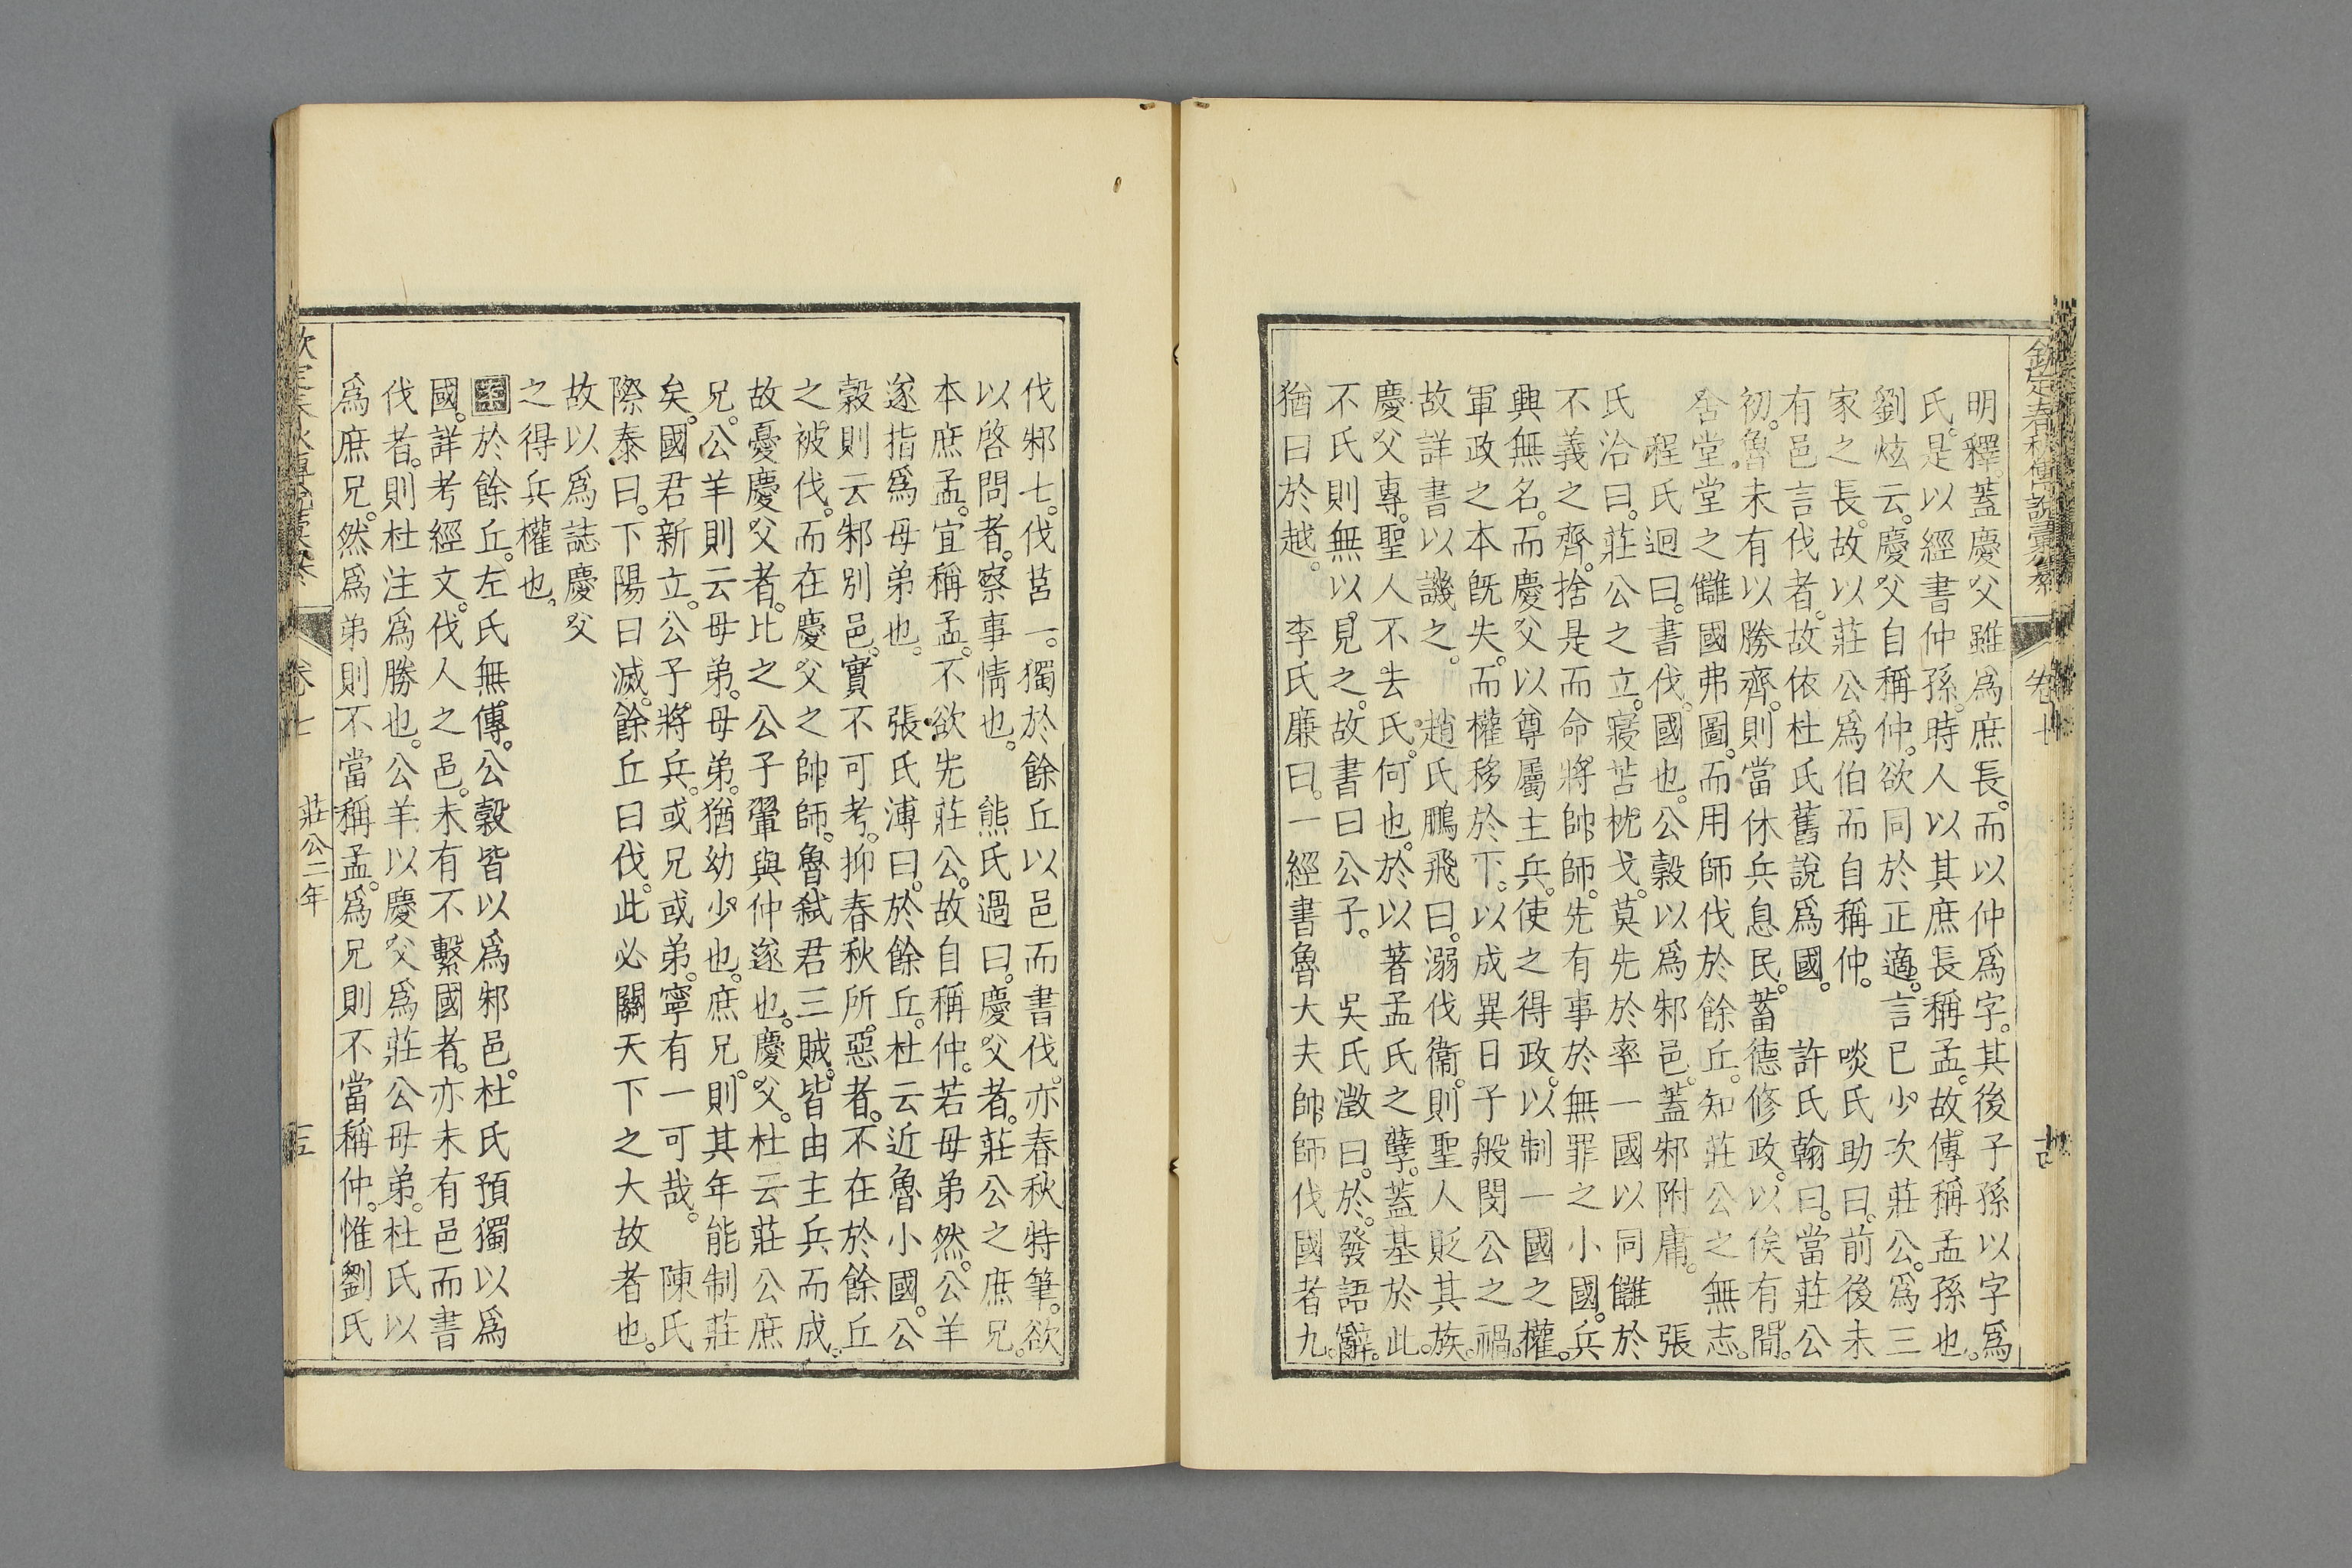 欽定春秋傳說彙纂 卷七 古
明釋。蓋慶父雖爲庶長。而以仲爲字。其後子孫以字爲
氏。是以經書仲孫。時人以其庶長稱孟。故傳稱孟孫也。
劉炫云。慶父自稱仲。欲同於正適。言已少次莊公。爲三
家之長。故以莊公爲伯而自稱仲。 啖氏助曰。前後未
有邑言伐者。故依杜氏舊說爲國。 許氏翰曰。當莊公
初。魯未有以勝齊。則當休兵息民。蓄德修政。以俟有閒。
舍堂堂之讎國弗圖。而用師伐於餘丘。知莊公之無志。
程氏迥曰。書伐。國也。公穀以爲邾邑。蓋邾附庸。 張
氏洽曰。莊公之立。寢苫枕戈。莫先於率一國以同讎於
不義之齊。捨是而命將帥師。先有事於無罪之小國。兵
興無名。而慶父以尊屬主兵。使之得政。以制一國之權。
軍政之本旣失。而權移於下。以成異日子般閔公之禍。
故詳書以譏之。 趙氏鵬飛曰。溺伐衞。則聖人貶其族。
慶父專。聖人不去氏。何也。於以著孟氏之孽。蓋基於此。
不氏則無以見之。故書曰公子。 吳氏澂曰。於。發語辭。
猶曰於越。 李氏廉曰。一經書魯大夫帥師伐國者九。
伐邾七。伐莒一。獨於餘丘以邑而書伐。亦春秋特筆。欲
以啓問者。察事情也。 熊氏過曰。慶父者。莊公之庶兄。
本庶孟。宜稱孟。不欲先莊公。故自稱仲。若母弟然。公羊
遂指爲母弟也。 張氏溥曰。於餘丘。杜云近魯小國。公
穀則云邾別邑。實不可考。抑春秋所惡者。不在於餘丘
之被伐。而在慶父之帥師。魯弑君三賊。皆由主兵而成。
故憂慶父者。比之公子翬與仲遂也。慶父。杜云莊公庶
兄。公羊則云母弟。母弟。猶幼少也。庶兄。則其年能制莊
矣。國君新立。公子將兵。或兄或弟。寧有一可哉。 陳氏
際泰曰。下陽曰滅。餘丘曰伐。此必關天下之大故者也。
故以爲誌慶父
之得兵權也。
案於餘丘。左氏無傳。公穀皆以爲邾邑。杜氏預獨以爲
國。詳考經文。伐人之邑。未有不繫國者。亦未有邑而書
伐者。則杜注爲勝也。公羊以慶父爲莊公母弟。杜氏以
爲庶兄。然爲弟則不當稱孟。爲兄則不當稱仲。惟劉氏
卷七 莊公二年